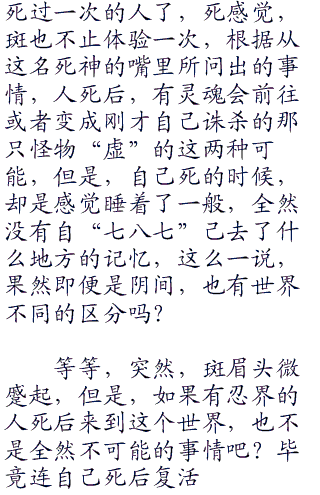 死过一次的人了，死感觉，
斑也不止体验一次，根据从
这名死神的嘴里所问出的事
情，人死后，有灵魂会前往
或者变成刚才自己诛杀的那
只怪物“虚”的这两种可
能，但是，自己死的时候，
却是感觉睡着了一般，全然
没有自“七八七”己去了什
么地方的记忆，这么一说，
果然即便是阴间，也有世界
不同的区分吗？
等等，突然，斑眉头微
蹙起，但是，如果有忍界的
人死后来到这个世界，也不
是全然不可能的事情吧？毕
竟连自己死后复活